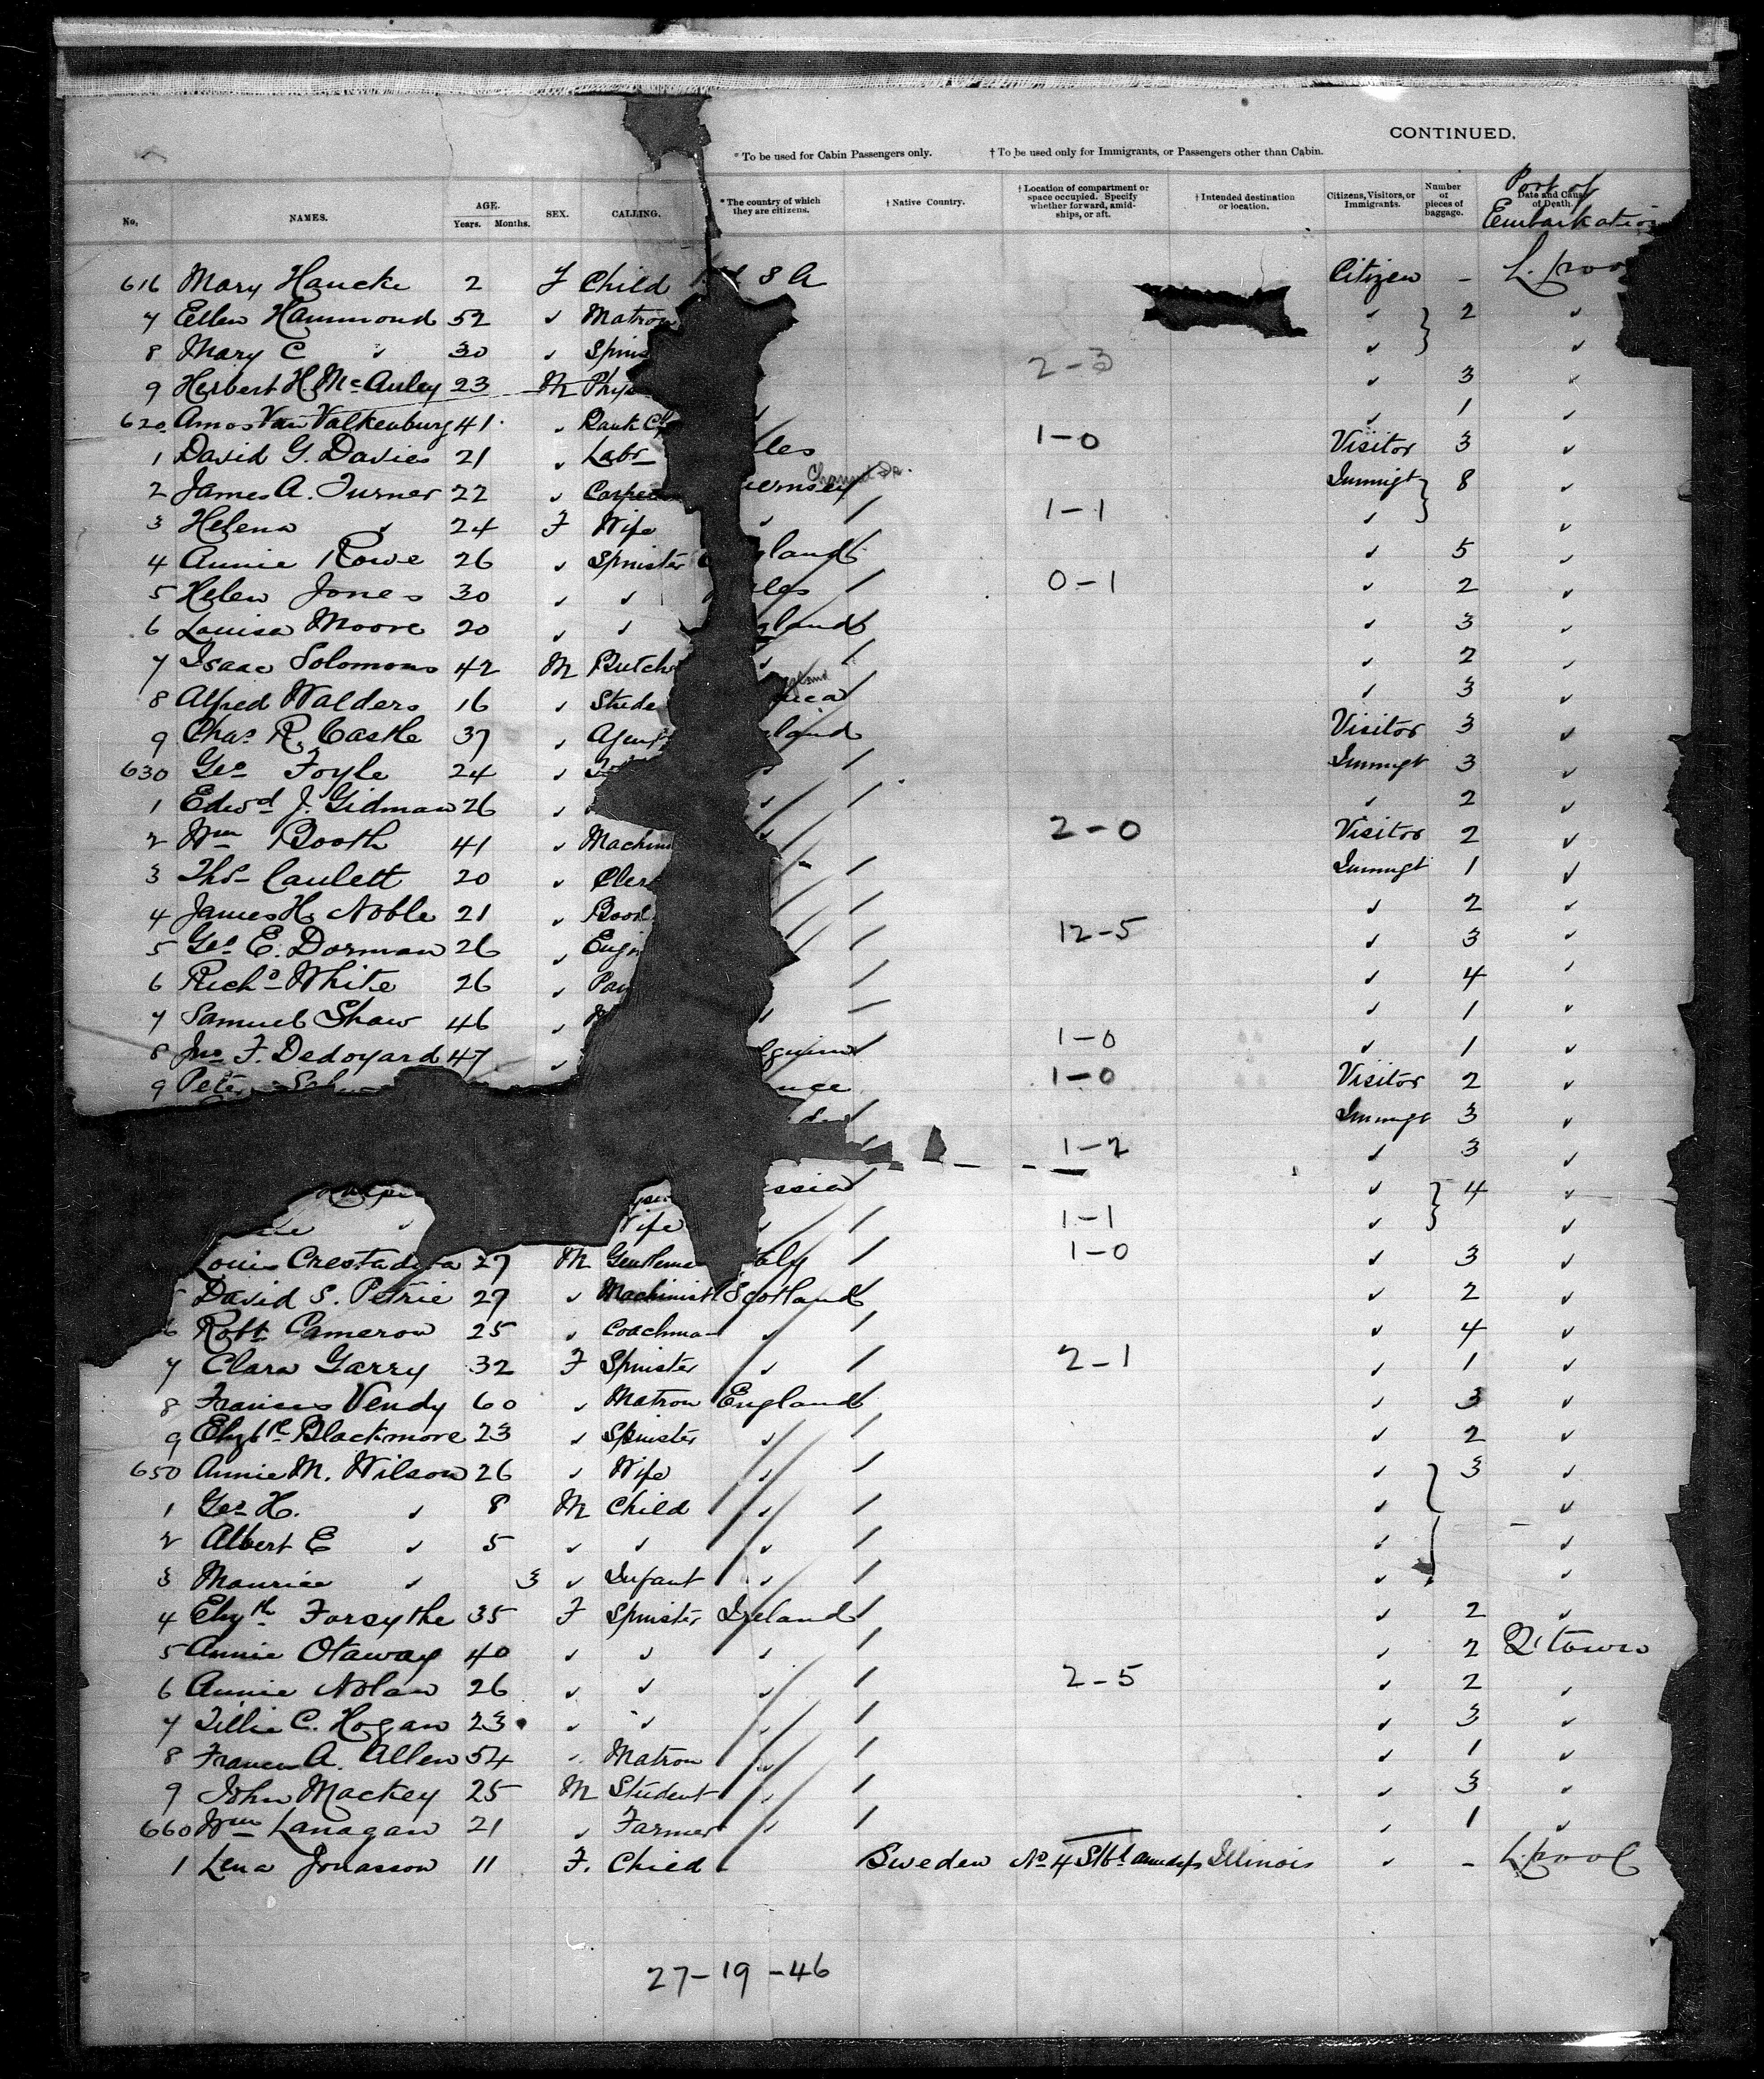 CONTINUED.
* To be used for Cabin Passengers only. † To be used only for Immigrants, or Passengers other than Cabin.
No. NAMES. AGE. Years. Months. SEX. CALLING. * The country of which they are citizens. † Native Country. † Location of compartment or space occupied. Specify whether forward, amidships, or aft. † Intended destination or location. Citizens, Visitors, or Immigrants. Number of pieces of baggage. Date and Cause of Death.
Port of Embarkation
616 Mary Haucke 2 F Child S A Citizen - L.pool
7 Ellen Hammond 52 ✓ Matron ✓ 2 ✓
8 Mary C ✓ 30 ✓ Spins ✓ ✓
2-3
9 Herbert H. McAuley 23 M Phys ✓ 3 ✓
620 Amos Van Valkenburg 41 ✓ ✓ 1 ✓
1 David G. Davies 21 ✓ Labr les 1-0 Visitor 3 ✓
2 James A. Turner 22 ✓ Carpe uernsey Channel Is. Immigt 8 ✓
3 Helena ✓ 24 F Wife ✓ 1-1 ✓ ✓
4 Annie Rowe 26 ✓ Spinster gland ✓ 5 ✓
5 Helen Jones 30 ✓ ✓ les 0-1 ✓ 2 ✓
6 Louisa Moore 20 ✓ ✓ gland ✓ 3 ✓
7 Isaac Solomons 42 M Butch ✓ ✓ 2 ✓
8 Alfred Walders 16 ✓ Stude ica gland ✓ 3 ✓
9 Chas R. Castle 37 ✓ Agent land Visitor 3 ✓
630 Geo Foyle 24 ✓ ✓ Immigt 3 ✓
1 Edwd J. Gidman 26 ✓ ✓ ✓ 2 ✓
2 Wm Booth 41 ✓ Machin 2-0 Visitor 2 ✓
3 Thos Caulett 20 ✓ Cler Immigt 1 ✓
4 James H. Noble 21 ✓ Boo ✓ 2 ✓
5 Geo E. Dorman 26 ✓ Engi 12-5 ✓ 3 ✓
6 Richd White 26 ✓ Pa ✓ 4 ✓
7 Samuel Shaw 46 ✓ ✓ 1 ✓
8 Jno. F. Dedoyard 47 ✓ lgium 1-0 ✓ 1 ✓
9 Peter nce 1-0 Visitor 2 ✓
Immigt 3 ✓
1-2 ✓ 3 ✓
ssia ✓ 4 ✓
✓ ife ✓ 1-1 ✓ ✓
Louis 27 M Gentlema taly 1-0 ✓ 3 ✓
David S. Petrie 27 ✓ Machinist Scotland ✓ 2 ✓
6 Robt Cameron 25 ✓ Coachman ✓ ✓ 4 ✓
7 Clara Garry 32 F Spinster ✓ 2-1 ✓ 1 ✓
8 Francis Vendy 60 ✓ Matron England ✓ 3 ✓
9 Elizbth Blackmore 23 ✓ Spinster ✓ ✓ 2 ✓
650 Annie M. Wilson 26 ✓ Wife ✓ ✓ 3 ✓
1 Geo H. ✓ 8 M Child ✓ ✓ ✓
2 Albert E ✓ 5 ✓ ✓ ✓ ✓ - ✓
3 Maurice ✓ 3 ✓ Infant ✓ ✓ ✓
4 Elizth Forsythe 35 F Spinster Ireland ✓ 2 ✓
5 Annie Otaway 40 ✓ ✓ ✓ ✓ 2 Q'town
6 Annie Nolan 26 ✓ ✓ ✓ 2-5 ✓ 2 ✓
7 Tillie C. Hogan 23 ✓ ✓ ✓ ✓ 3 ✓
8 Frances A. Allen 54 ✓ Matron ✓ ✓ 1 ✓
9 John Mackey 25 M Student ✓ ✓ 3 ✓
660 Wm Lanagan 21 ✓ Farmer ✓ ✓ 1 ✓
1 Lena Jonasson 11 F. Child Sweden No 4 Illinois ✓ - L.pool
27-19-46